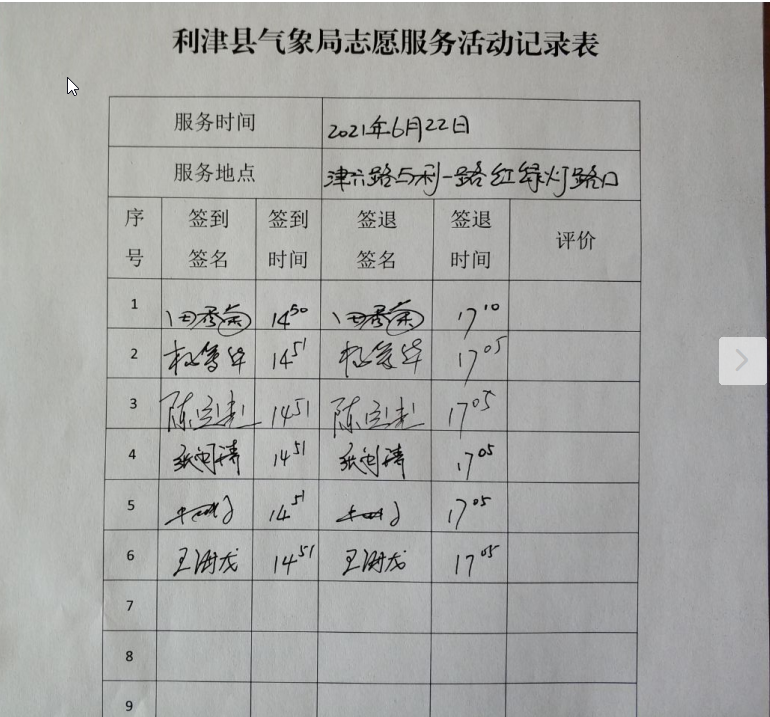 利津县气象局志愿服务活动记录表
服务时间 2021年6月22日
服务地点 津六路与利一路红绿灯路口
序号 签到签名 签到时间 签退签名 签退时间 评价
1 14 50 17 10
2 14 51 17 05
3 陈 1451 陈 17 05
4 14 51 17 05
5 14 51 17 05
6 王海龙 14 51 王海龙 17 05
7
8
9